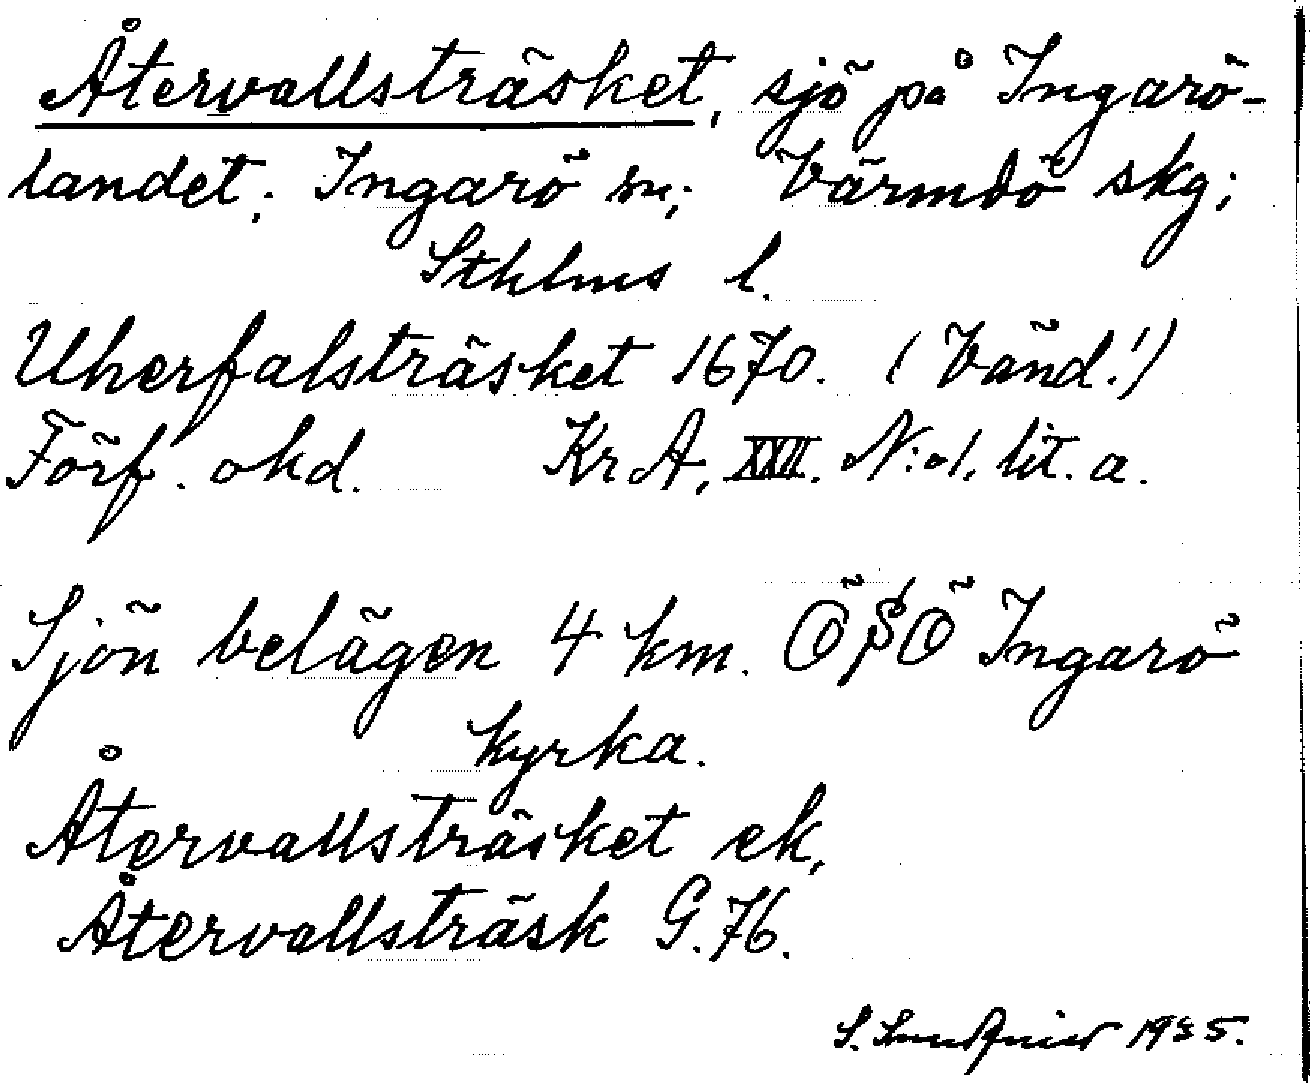 Återvallsträsket, sjö på Ingarö-
landet; Ingarö sn; Värmdö skg;
Sthlms l.
Uherfalsträsket 1670. (Vänd!)
Förf. okd. KrA, XXII. N:o 1. lit. a.
Sjön belägen 4 km. ÖSÖ Ingarö
kyrka.
Återvallsträsket ek,
Återvallsträsk G.76.
S. 1935.